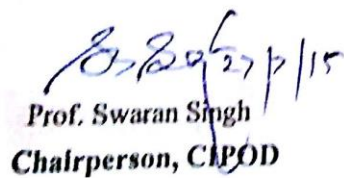 27/7/15
Prof. Swaran Singh
Chairperson, CIPOD